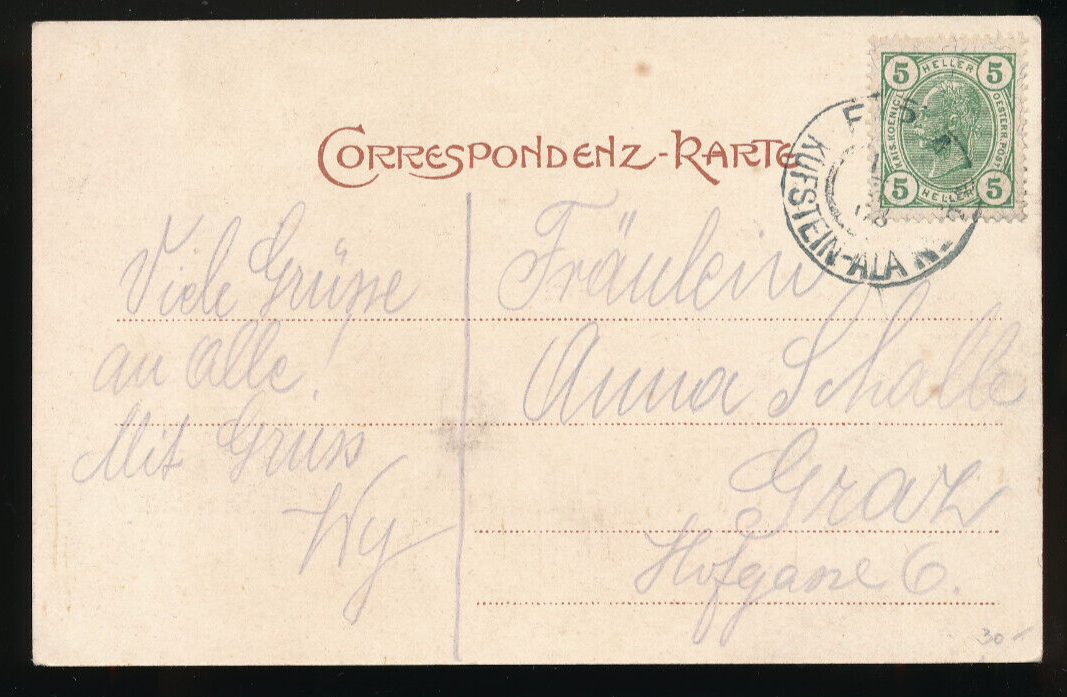 CORRESPONDENZ-KARTE
5 HELLER 5
KAIS. KOENIGL. OESTERR. POST
5 HELLER 5
KUFSTEIN-ALA
Viele Grüsse
an alle!
Mit Gruss
Fräulein
Anna Schalle
Graz
Hofgasse 6.
30